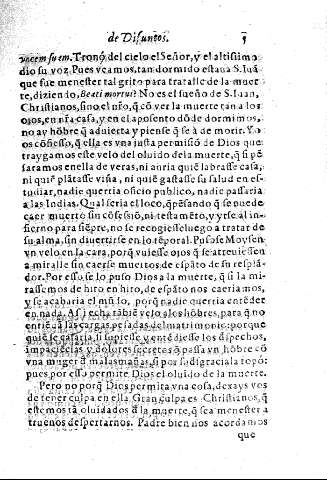 de Difuntos. 5
vocem suam. Tronó del cielo el Señor, y el altissimo
dio su voz. Pues veamos, tan dormido estaua S. Iuã
que fue menester tal grito para tratalle de la muer
te, diziendo, Beati mortui? No es el sueño de S. Iuan,
Christianos, sino el nr̃o, q̃ cõ ver la muerte tan a los
ojos, en nr̃a casa, y en el aposento dõde dormimos,
no ay hõbre q̃ aduierta y piense q̃ se à de morir. Yo
os cõfiesso, q̃ ella es vna justa permisiõ de Dios que
traygamos este velo del oluido de la muerte, q̃ si pẽ
saramos en ella de veras, ni auria quiẽ labrasse casa,
ni quiẽ plãtasse viña, ni quiẽ gastasse su salud en es-
tudiar, nadie querria oficio publico, nadie passaria
a las Indias. Qual seria el loco, q̃ pẽsando q̃ se puede
caer muerto sin cõfessiõ, ni testamẽto, y yrse al in-
fierno para siẽpre, no se recogiesse luego a tratar de
su alma, sin diuertirse en lo tẽporal. Pusose Moysen
vn velo en la cara, porq̃ vuiesse ojos q̃ se atreuiessen
a miralle sin caerse muertos de espãto de su resplã-
dor. Por esso se lo puso Dios a la muerte, q̃ si la mi-
rassemos de hito en hito, de espãto nos caeriamos,
y se acabaria el mũdo, porq̃ nadie querria entẽder
en nada. Assi echa tãbiẽ velo a los hõbres, para q̃ no
entiẽdã las cargas pesadas del matrimonio: porque
quiẽ se casaria, si supiesse y entẽdiesse los despechos,
impaciẽcias y dolores secretos q̃ passa vn hõbre cõ
vna muger q̃ malas mañas, si por su disgracia la topó:
pues por esso permite Dios el oluido de la muerte.
Pero no porq̃ Dios permita vna cosa, dexays vos
de tener culpa en ella. Gran culpa es Christianos, q̃
estemos tã oluidados d̃ la muerte, q̃ sea menester a
truenos despertarnos. Padre bien nos acordamos
que